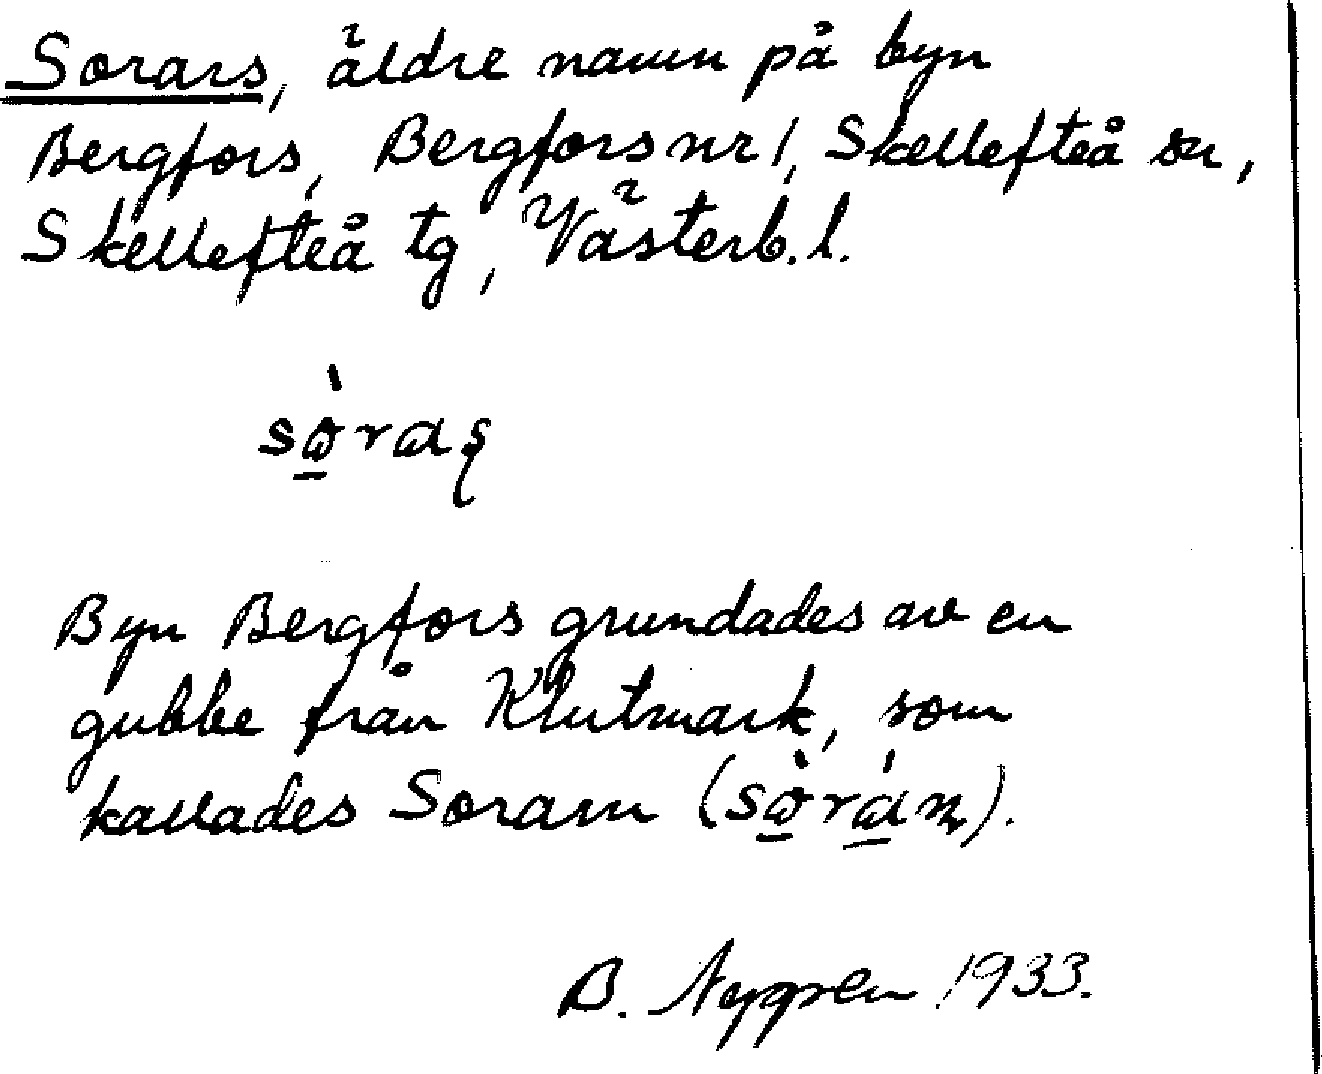 Sorars, äldre namn på byn
Bergfors, Bergfors nr 1, Skellefteå sn,
Skellefteå tg, Västerb. l.
Byn Bergfors grundades av en
gubbe från Klutmark, som
kallades Soram
B. Nygren 1933.